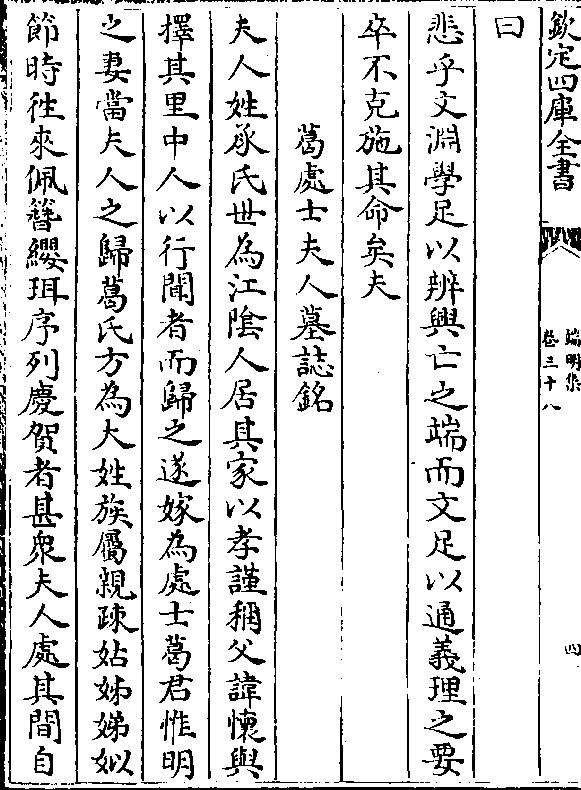 欽定四庫全書
端明集
卷三十八
四
曰
悲乎文淵學足以辨興亡之端而文足以通義理之要
卒不克施其命矣夫
葛處士夫人墓誌銘
夫人姓承氏世為江隂人居其家以孝謹稱父諱懷與
擇其里中人以行聞者而歸之遂嫁為處士葛君惟明
之妻當夫人之歸葛氏方為大姓族屬親疎姑姊娣姒
節時徃來佩簪纓珥序列慶賀者甚衆夫人處其間自